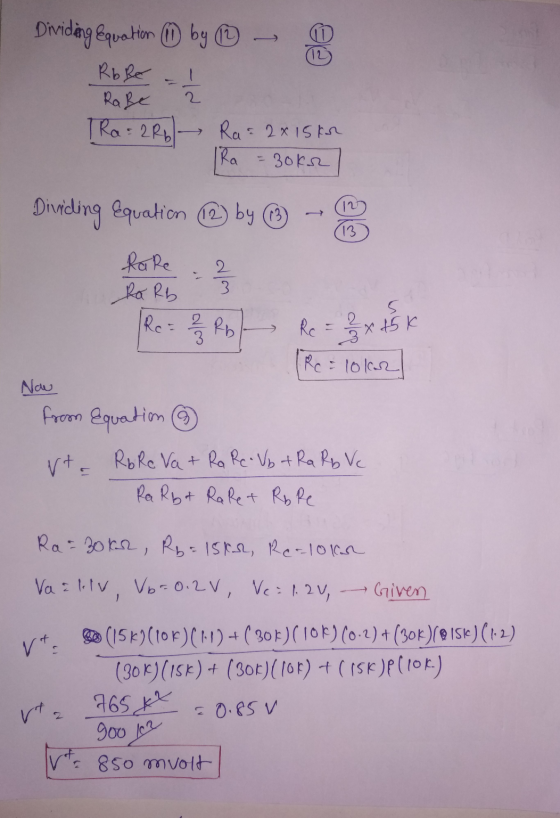 Dividing Equation ⑪ by ⑫ → ⑪/⑫
RbRc/RaRc = 1/2
Ra = 2Rb → Ra = 2 x 15kΩ
Ra = 30kΩ
Dividing Equation ⑫ by ⑬ → ⑫/⑬
RaRc/RaRb = 2/3
Rc = 2/3 Rb → Rc = 2/3 x 15 5 K
Rc = 10kΩ
Now
from Equation ⑨
V+ = RbRc Va + RaRc·Vb + RaRb Vc / RaRb + RaRc + RbRc
Ra = 30kΩ, Rb = 15kΩ, Rc = 10kΩ
Va = 1.1V, Vb = 0.2V, Vc = 1.2V, → Given
V+ = (15K)(10K)(1.1) + (30K)(10K)(0.2) + (30K)(15K)(1.2) / (30K)(15K) + (30K)(10K) + (15K)(10K)
V+ = 765 K² / 900 K² = 0.85 V
V+ = 850 mvolt